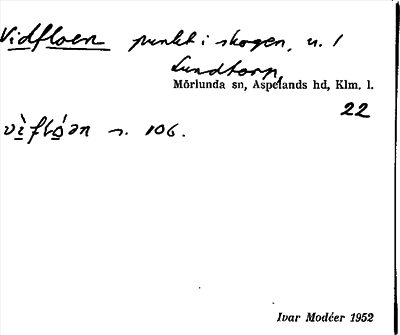 Vidfloen punkt i skogen, n. 1
Lundtorp,
Mörlunda sn, Aspelands hd, Klm. l.
22
vìflóən n. 106.
Ivar Modéer 1952